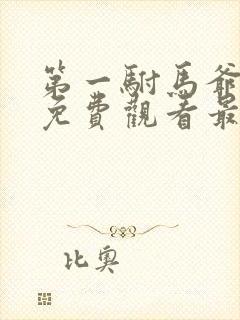 第一駙馬爺
免費觀看最
比奧